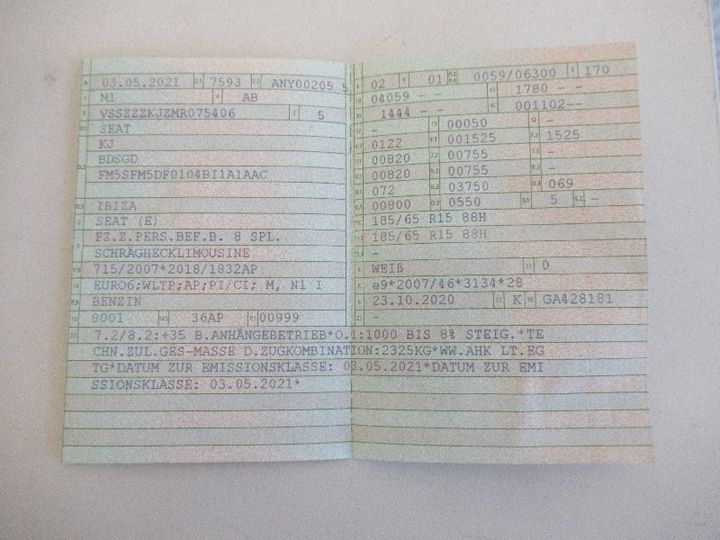 03.05.2021 7593 ANY00205 5
M1 AB
VSSZZZKJZMR075406 5
SEAT
KJ
BDSGD
FM5SFM5DF0104BI1A1AAC
IBIZA
SEAT (E)
FZ.Z.PERS.BEF.B. 8 SPL.
SCHRÄGHECKLIMOUSINE
715/2007*2018/1832AP
EURO6;WLTP;AP;PI/CI; M, N1 I
BENZIN
0001 36AP 00999
02 01 0059/06300 170
04059 - - 1780 - -
1444 - - 001102--
- 00050 -
0122 001525 1525
00820 00755 -
00820 00755 -
072 03750 069
00800 0550 5 -
185/65 R15 88H
185/65 R15 88H
-
WEIß 0
e9*2007/46*3134*28
23.10.2020 K GA428181
7.2/8.2:+35 B.ANHÄNGEBETRIEB*O.1:1000 BIS 8% STEIG.*TE
CHN.ZUL.GES-MASSE D.ZUGKOMBINATION:2325KG*WW.AHK LT.EG
TG*DATUM ZUR EMISSIONSKLASSE: 03.05.2021*DATUM ZUR EMI
SSIONSKLASSE: 03.05.2021*